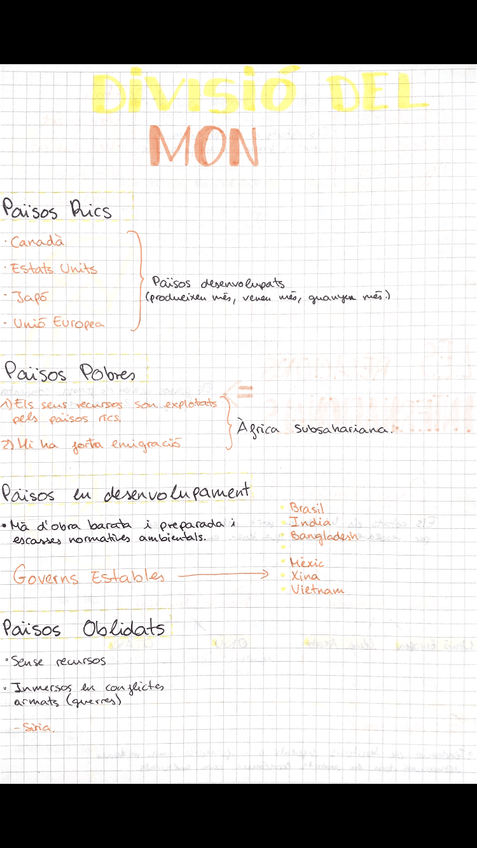 DIVISIÓ DEL
MON
Països Rics
· Canadà
· Estats Units
· Japó
· Unió Europea
Països desenvolupats
(produeixen més, venen més, guanyen més.)
Països Pobres
1) Els seus recursos son explotats
pels països rics.
2) Hi ha forta emigració
Àfrica subsahariana.
Països en desenvolupament
• Mà d'obra barata i preparada i
escasses normatives ambientals.
Governs Estables
• Brasil
• India
• Bangladesh
• Mèxic
• Xina
• Vietnam
Països Oblidats
· Sense recursos
· Inmersos en conflictes
armats (guerres)
- Síria.